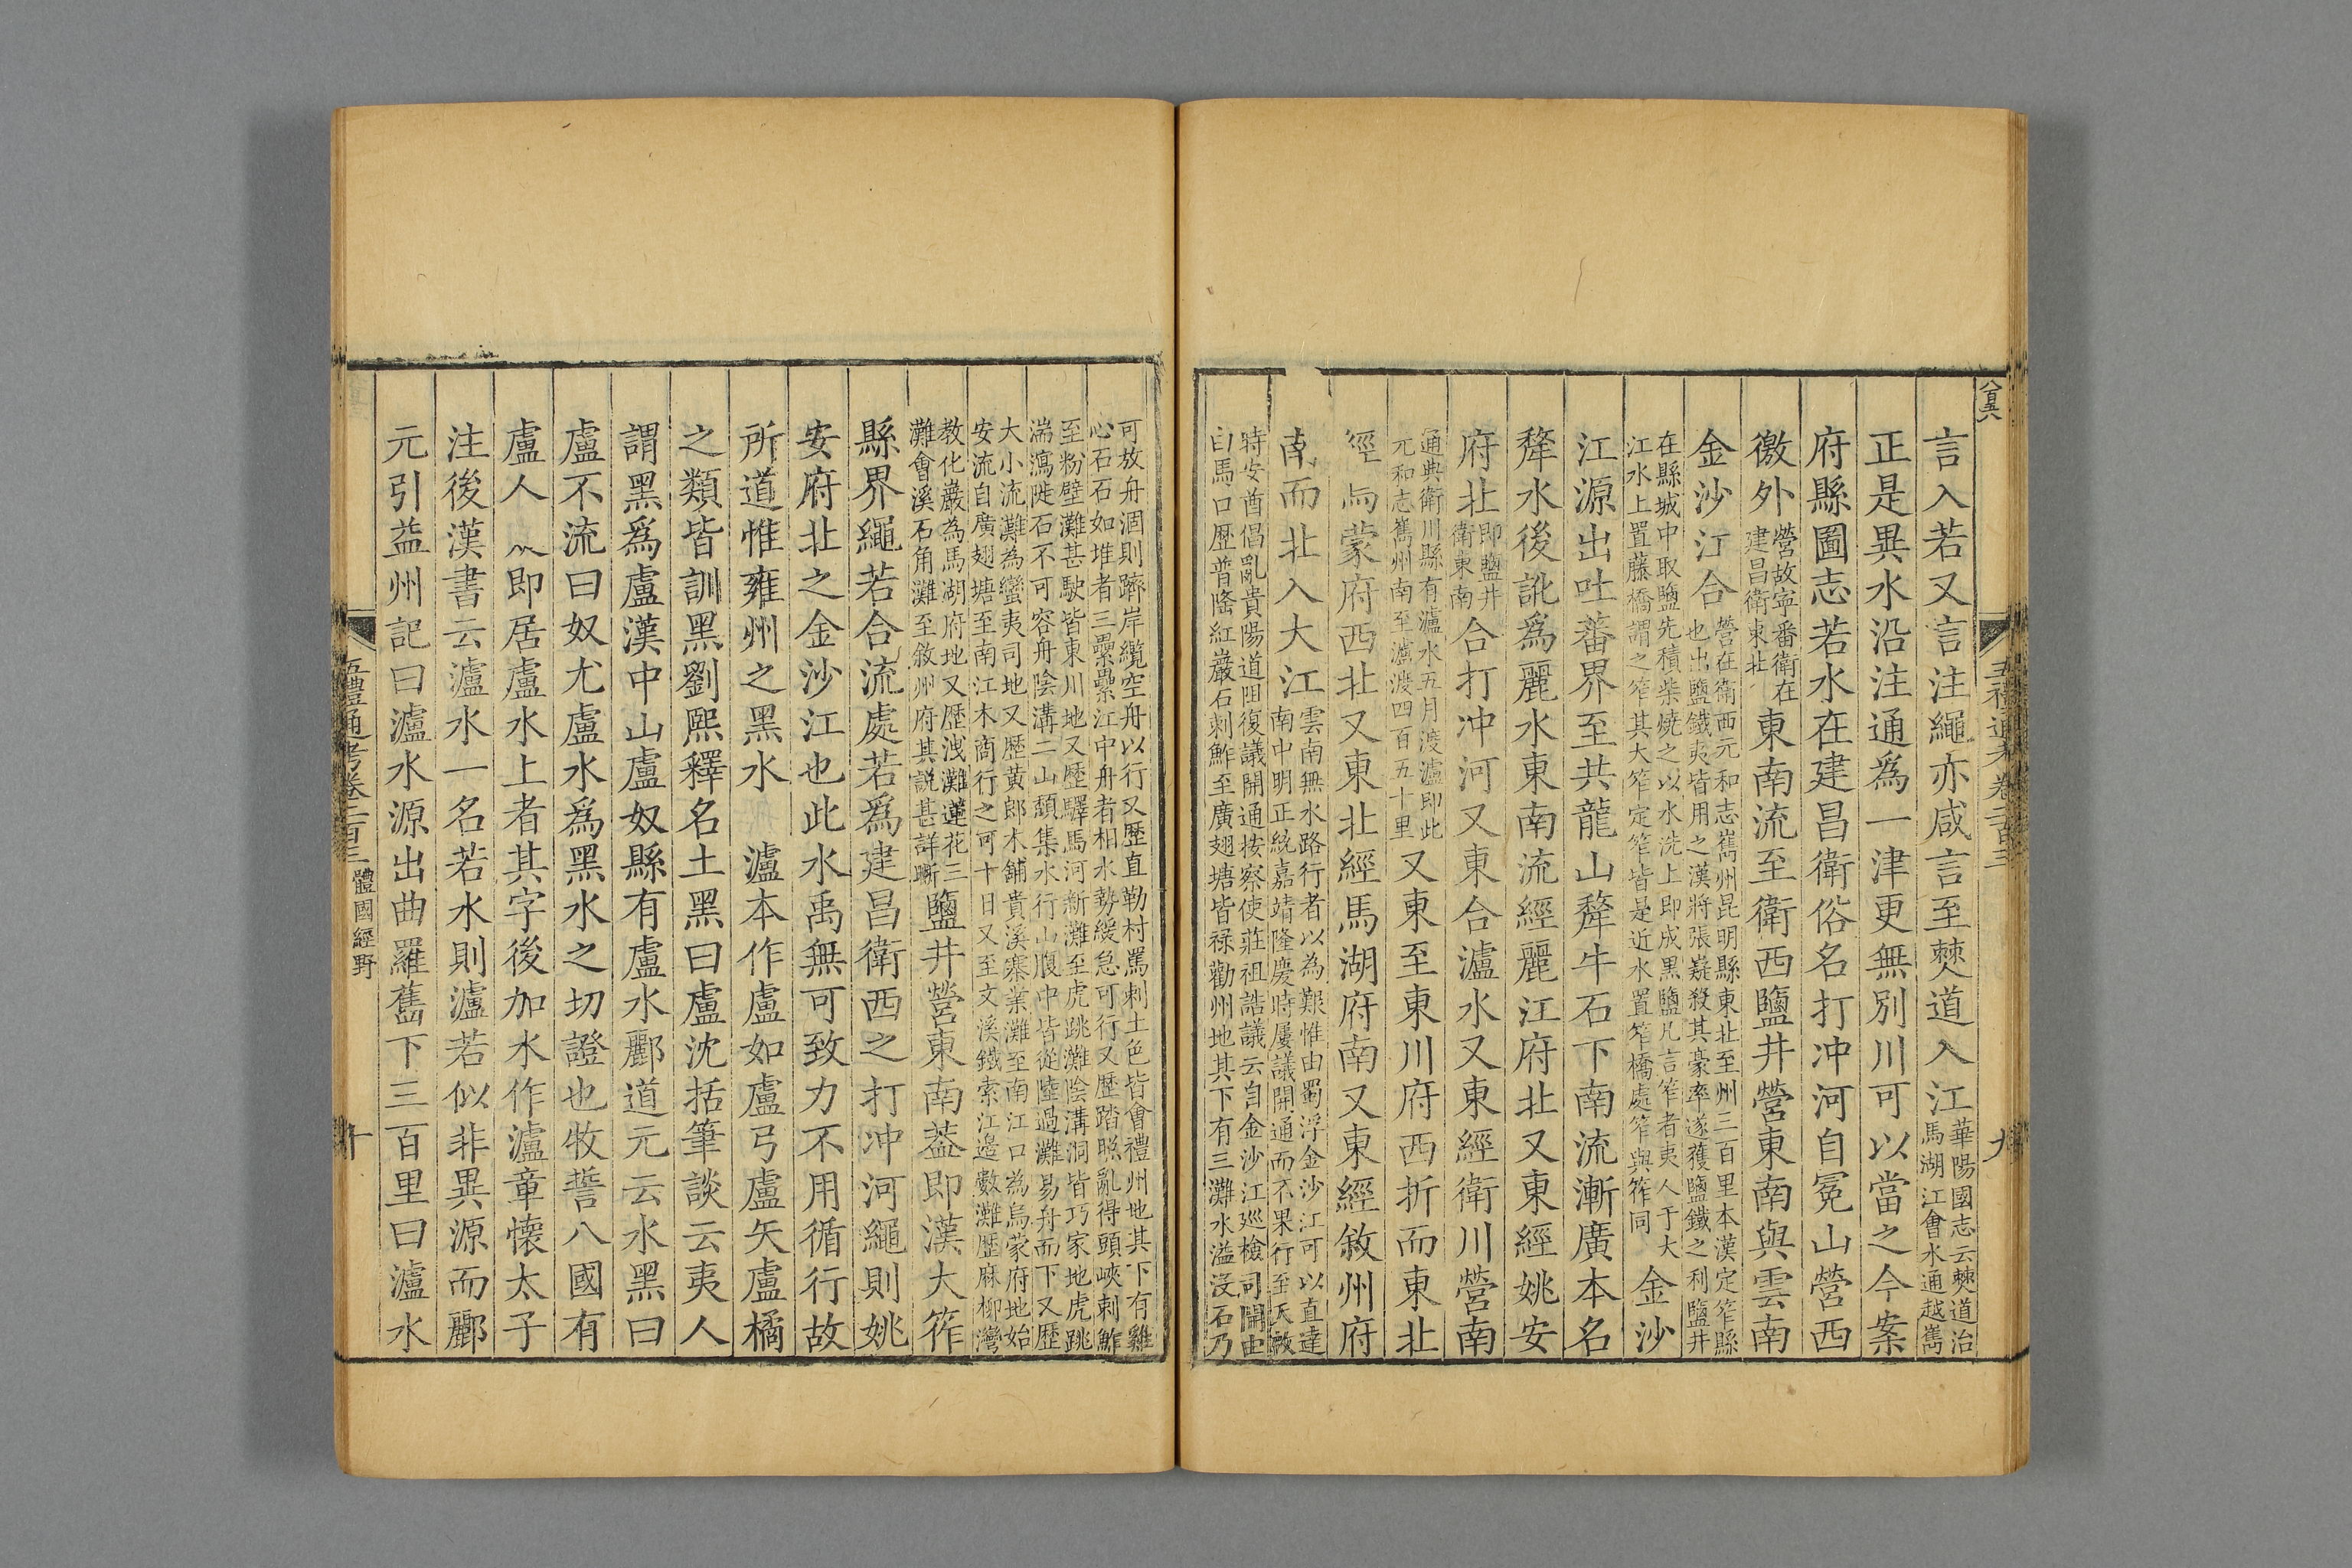 言入若又言注繩亦咸言至僰道入江華陽國志云僰道治馬湖江會水通越嶲
正是異水沿注通爲一津更無別川可以當之今案
府縣圖志若水在建昌衛俗名打冲河自冕山營西
徼外營故寧番衛在建昌衛東北東南流至衛西鹽井營東南與雲南
金沙江合營在衛西元和志嶲州昆明縣東北至州三百里本漢定筰縣也出鹽鐵夷皆用之漢將張嶷殺其豪率遂獲鹽鐵之利鹽井
在縣城中取鹽先積柴燒之以水洗上即成黑鹽凡言筰者夷人于大江水上置藤橋謂之筰其大筰定筰皆是近水置筰橋處筰與笮同金沙
江源出吐蕃界至共龍山犛牛石下南流漸廣本名
犛水後訛爲麗水東南流經麗江府北又東經姚安
府北即鹽井衛東南合打冲河又東合瀘水又東經衛川營南
通典衛川縣有瀘水五月渡瀘即此元和志嶲州南至瀘渡四百五十里又東至東川府西折而東北
經烏蒙府西北又東北經馬湖府南又東經敘州府
南而北入大江雲南無水路行者以為艱惟由蜀浮金沙江可以直達南中明正統嘉靖隆慶時屢議開通而不果行至天啟
時安酋倡亂貴陽道阻復議開通按察使莊祖誥議云自金沙江巡檢司開由白馬口歷普隆紅巖石剌鮓至廣翅塘皆祿勸州地其下有三灘水溢沒石乃
可放舟涸則躋岸纜空舟以行又歷直勒村罵剌土色皆會禮州地其下有雞心石石如堆者三纍纍江中舟者相水勢緩急可行又歷踏照亂得頭峽剌鮓
至粉壁灘甚駛皆東川地又歷驛馬河新灘至虎跳灘陰溝洞皆巧家地虎跳湍瀉陡石不可容舟陰溝二山頹集水行山腹中皆從陸過灘易舟而下又歷
大小流灘為蠻夷司地又歷黃郎木鋪貴溪寨業灘至南江口為烏蒙府地始安流自廣翅塘至南江木商行之可十日又至文溪鐵索江邉數灘歷麻柳灣
教化巖為馬湖府地又歷洩灘蓮花三灘會溪石角灘至敘州府其説甚詳晰鹽井營東南葢即漢大筰
縣界繩若合流處若爲建昌衛西之打冲河繩則姚
安府北之金沙江也此水禹無可致力不用循行故
所道惟雍州之黑水　瀘本作盧如盧弓盧矢盧橘
之類皆訓黑劉熙釋名土黑曰盧沈括筆談云夷人
謂黑爲盧漢中山盧奴縣有盧水酈道元云水黑曰
盧不流曰奴尤盧水爲黑水之切證也牧誓八國有
盧人　即居盧水上者其字後加水作瀘章懷太子
注後漢書云瀘水一名若水則瀘若似非異源而酈
元引益州記曰瀘水源出曲羅嶲下三百里曰瀘水
五禮通考卷二百三　體國經野
十